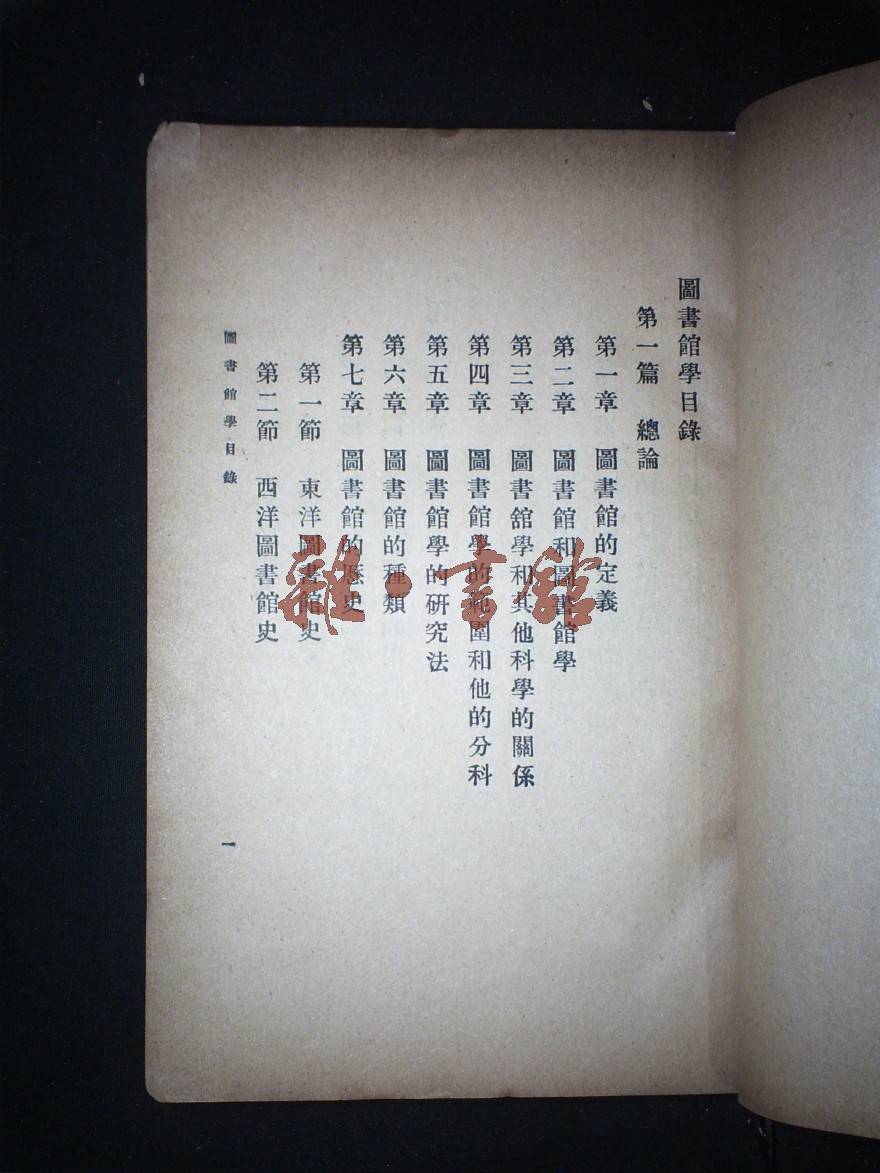 圖書館學目錄
第一篇 總論
第一章 圖書館的定義
第二章 圖書館和圖書館學
第三章 圖書舘學和其他科學的關係
第四章 圖書館學的範圍和他的分科
第五章 圖書館學的研究法
第六章 圖書館的種類
第七章 圖書館的歷史
第一節 東洋圖書館史
第二節 西洋圖書館史
圖書館學目錄
一
雜·書館